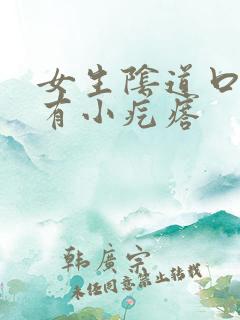 女生陰道口
有小疙瘩
韩廣宗
未任同意禁止转载